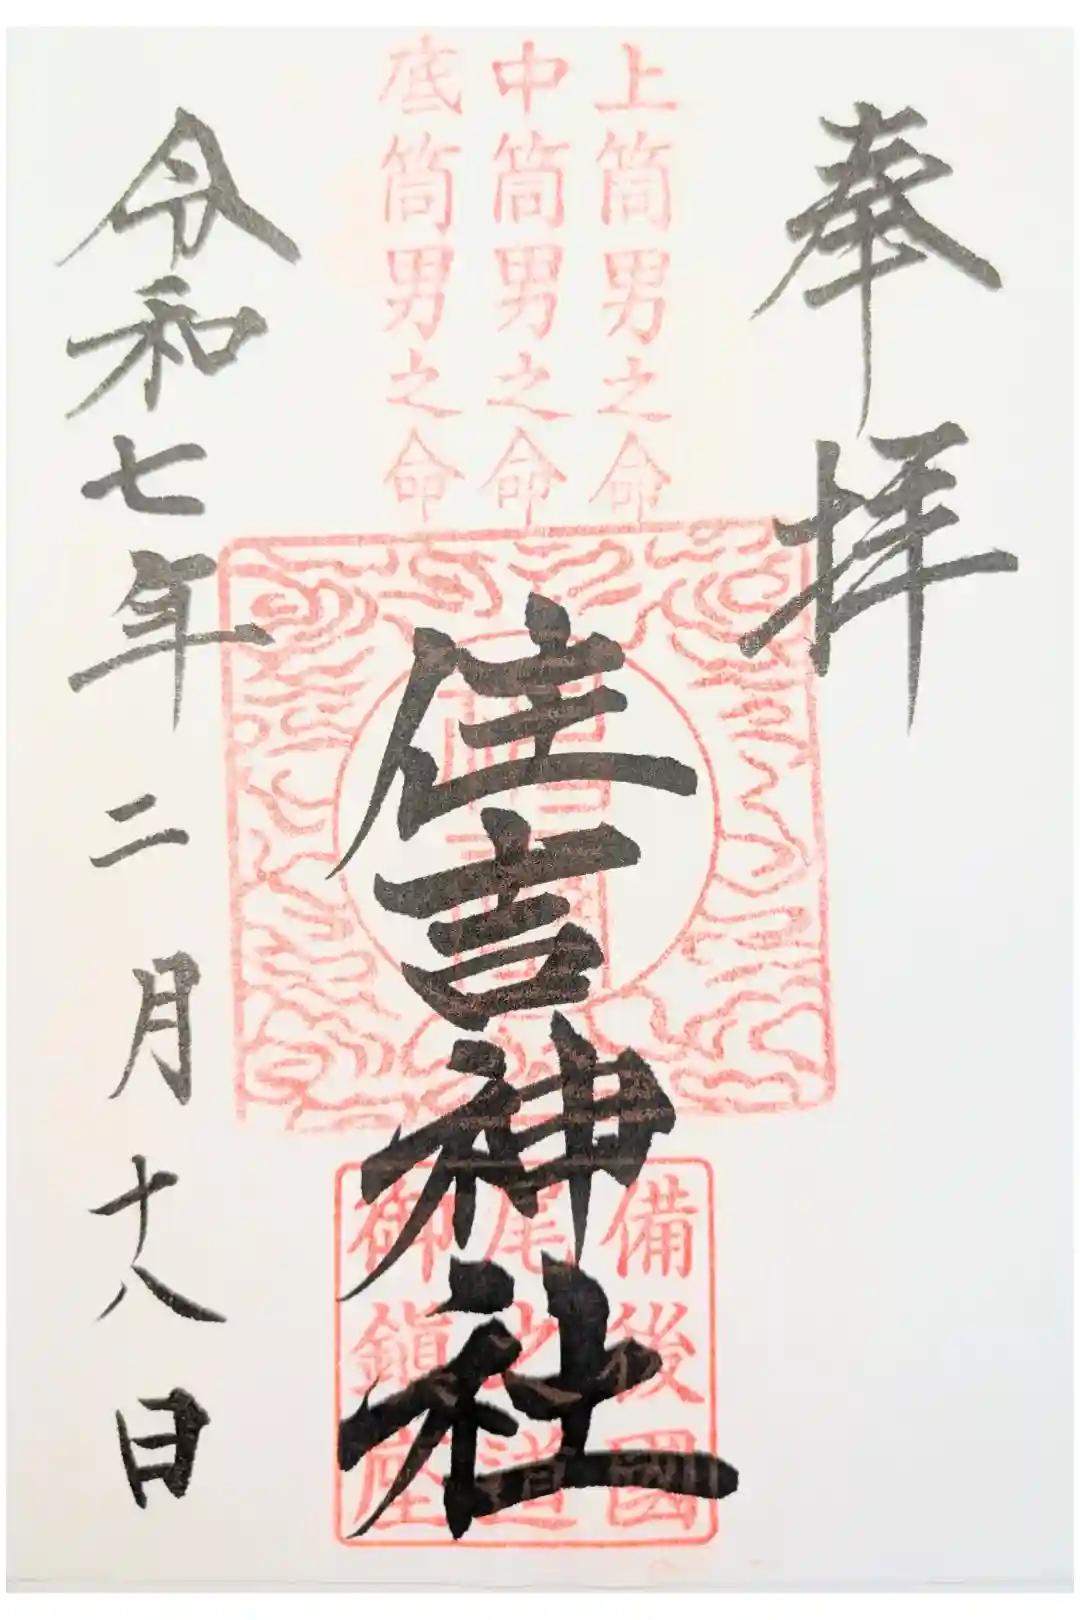 奉拝
上筒男之命
中筒男之命
底筒男之命
住吉神社
備後國
尾之道
御鎮座
令和七年二月十八日